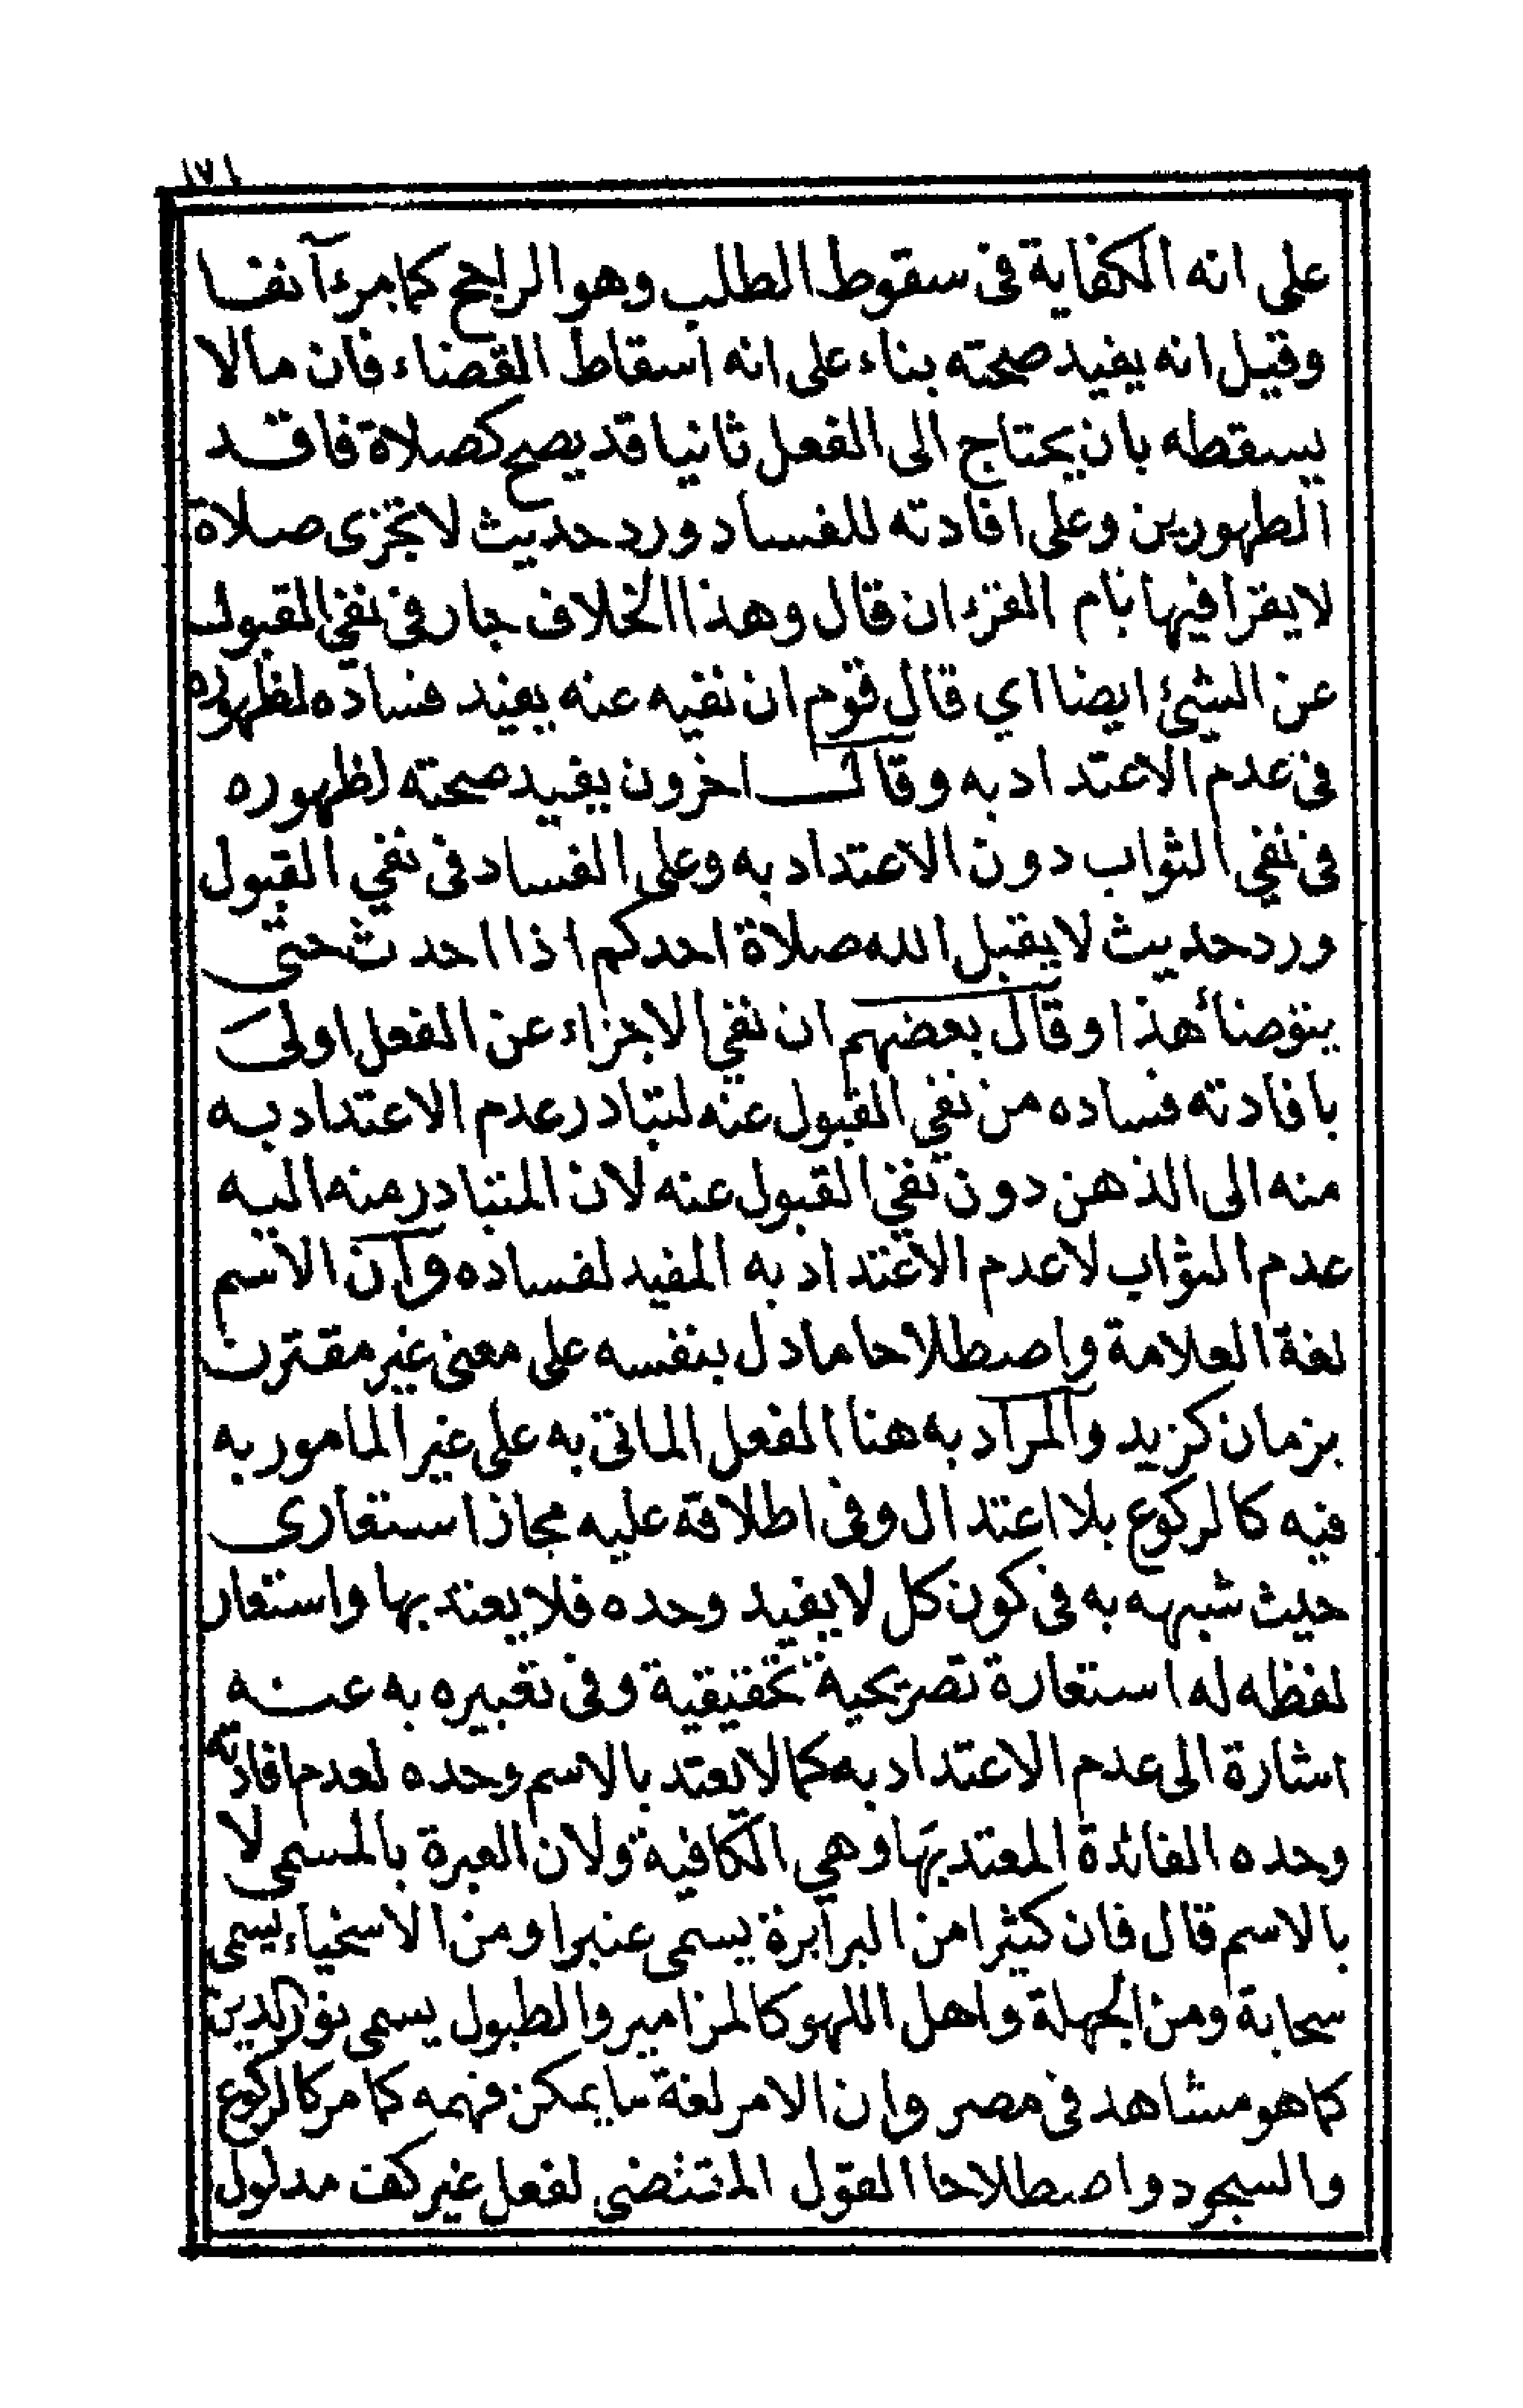 ١٧١
على انه الكفاية فى سقوط الطلب وهو الراجح كما مرء آنفا
وقيل انه يفيد صحته بناء على انه اسقاط القضاء فان مالا
يسقطه بان يحتاج الى الفعل ثانيا قد يصح كصلاة فاقد
الطهورين وعلى افادته للفساد ورد حديث لا تجزى صلاة
لا يقرا فيها بام القرءان قال وهذا الخلاف جار فى نفي القبول
عن الشئ ايضا اي قال قوم ان نفيه عنه يفيد فساده لظهوره
فى عدم الاعتداد به وقال اخرون يفيد صحته لظهوره
فى نفي الثواب دون الاعتداد به وعلى الفساد فى نفي القبول
ورد حديث لا يقبل الله صلاة احدكم اذا احدث حتى
يتوضأ هذا وقال بعضهم ان نفي الاجزاء عن الفعل اولى
بافادته فساده من نفي القبول عنه لتبادر عدم الاعتداد به
منه الى الذهن دون نفي القبول عنه لان المتبادر منه اليه
عدم الثواب لا عدم الاعتداد به المفيد لفساده وان الاسم
لغة العلامة واصطلاحا مادل بنفسه على معنى غير مقترن
بزمان كزيد والمراد به هنا الفعل الماتى به على غير المامور به
فيه كالركوع بلا اعتدال وفى اطلاقه عليه مجاز استعارى
حيث شبهه به فى كون كل لا يفيد وحده فلا يعتد بها واستعار
لفظه له استعارة تصريحية تحقيقية وفى تعبيره به عنه
اشارة الى عدم الاعتداد به كما لا يعتد بالاسم وحده لعدم افادته
وحده الفائدة المعتد بها وهي الكافية ولان العبرة بالمسمى لا
بالاسم قال فان كثيرا من البرابرة يسمى عنبرا ومن الاسخياء يسمى
سحابة ومن الجهلة واهل اللهو كالمزامير والطبول يسمى نور الدين
كما هو مشاهد فى مصر وان الامر لغة ما يمكن فهمه كما مر كالركوع
والسجود واصطلاحا القول المقتضى لفعل غير كف مدلول